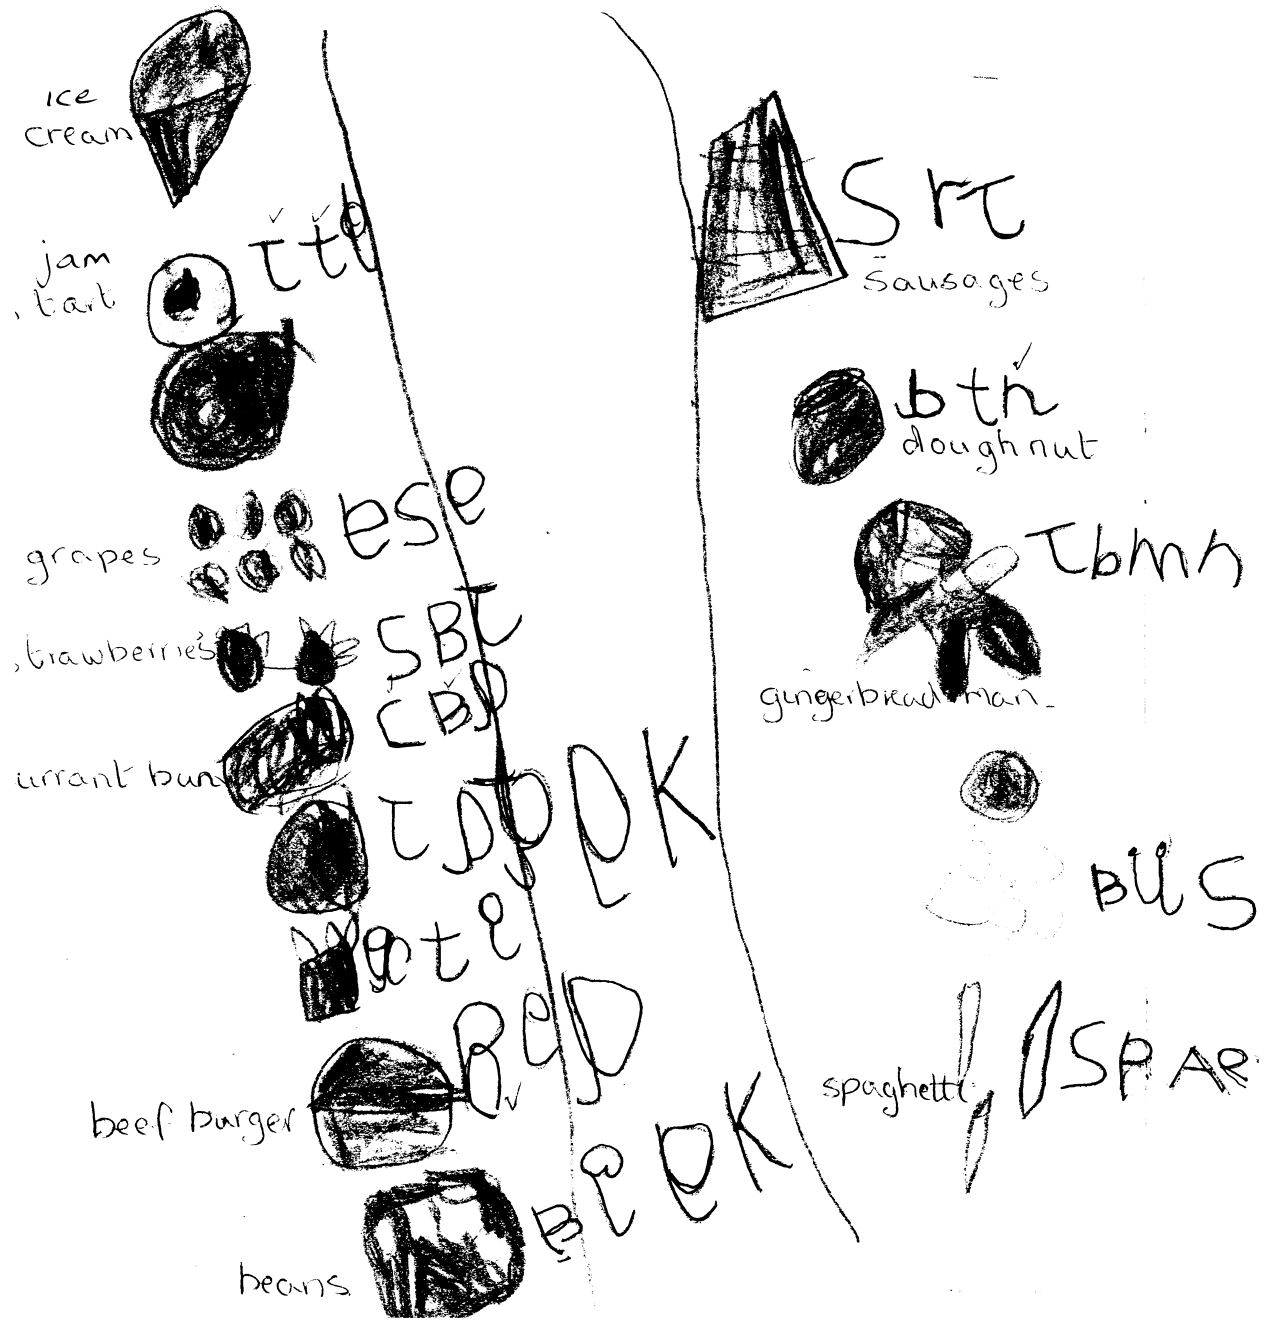 ice
cream
jam
tart
tte
grapes
ese
trawberries
SBT
CBP
urrant bun
beef burger
beans
Srt
Sausages
btn
doughnut
Tbmn
gingerbread man
BUS
spaghetti
SPAe